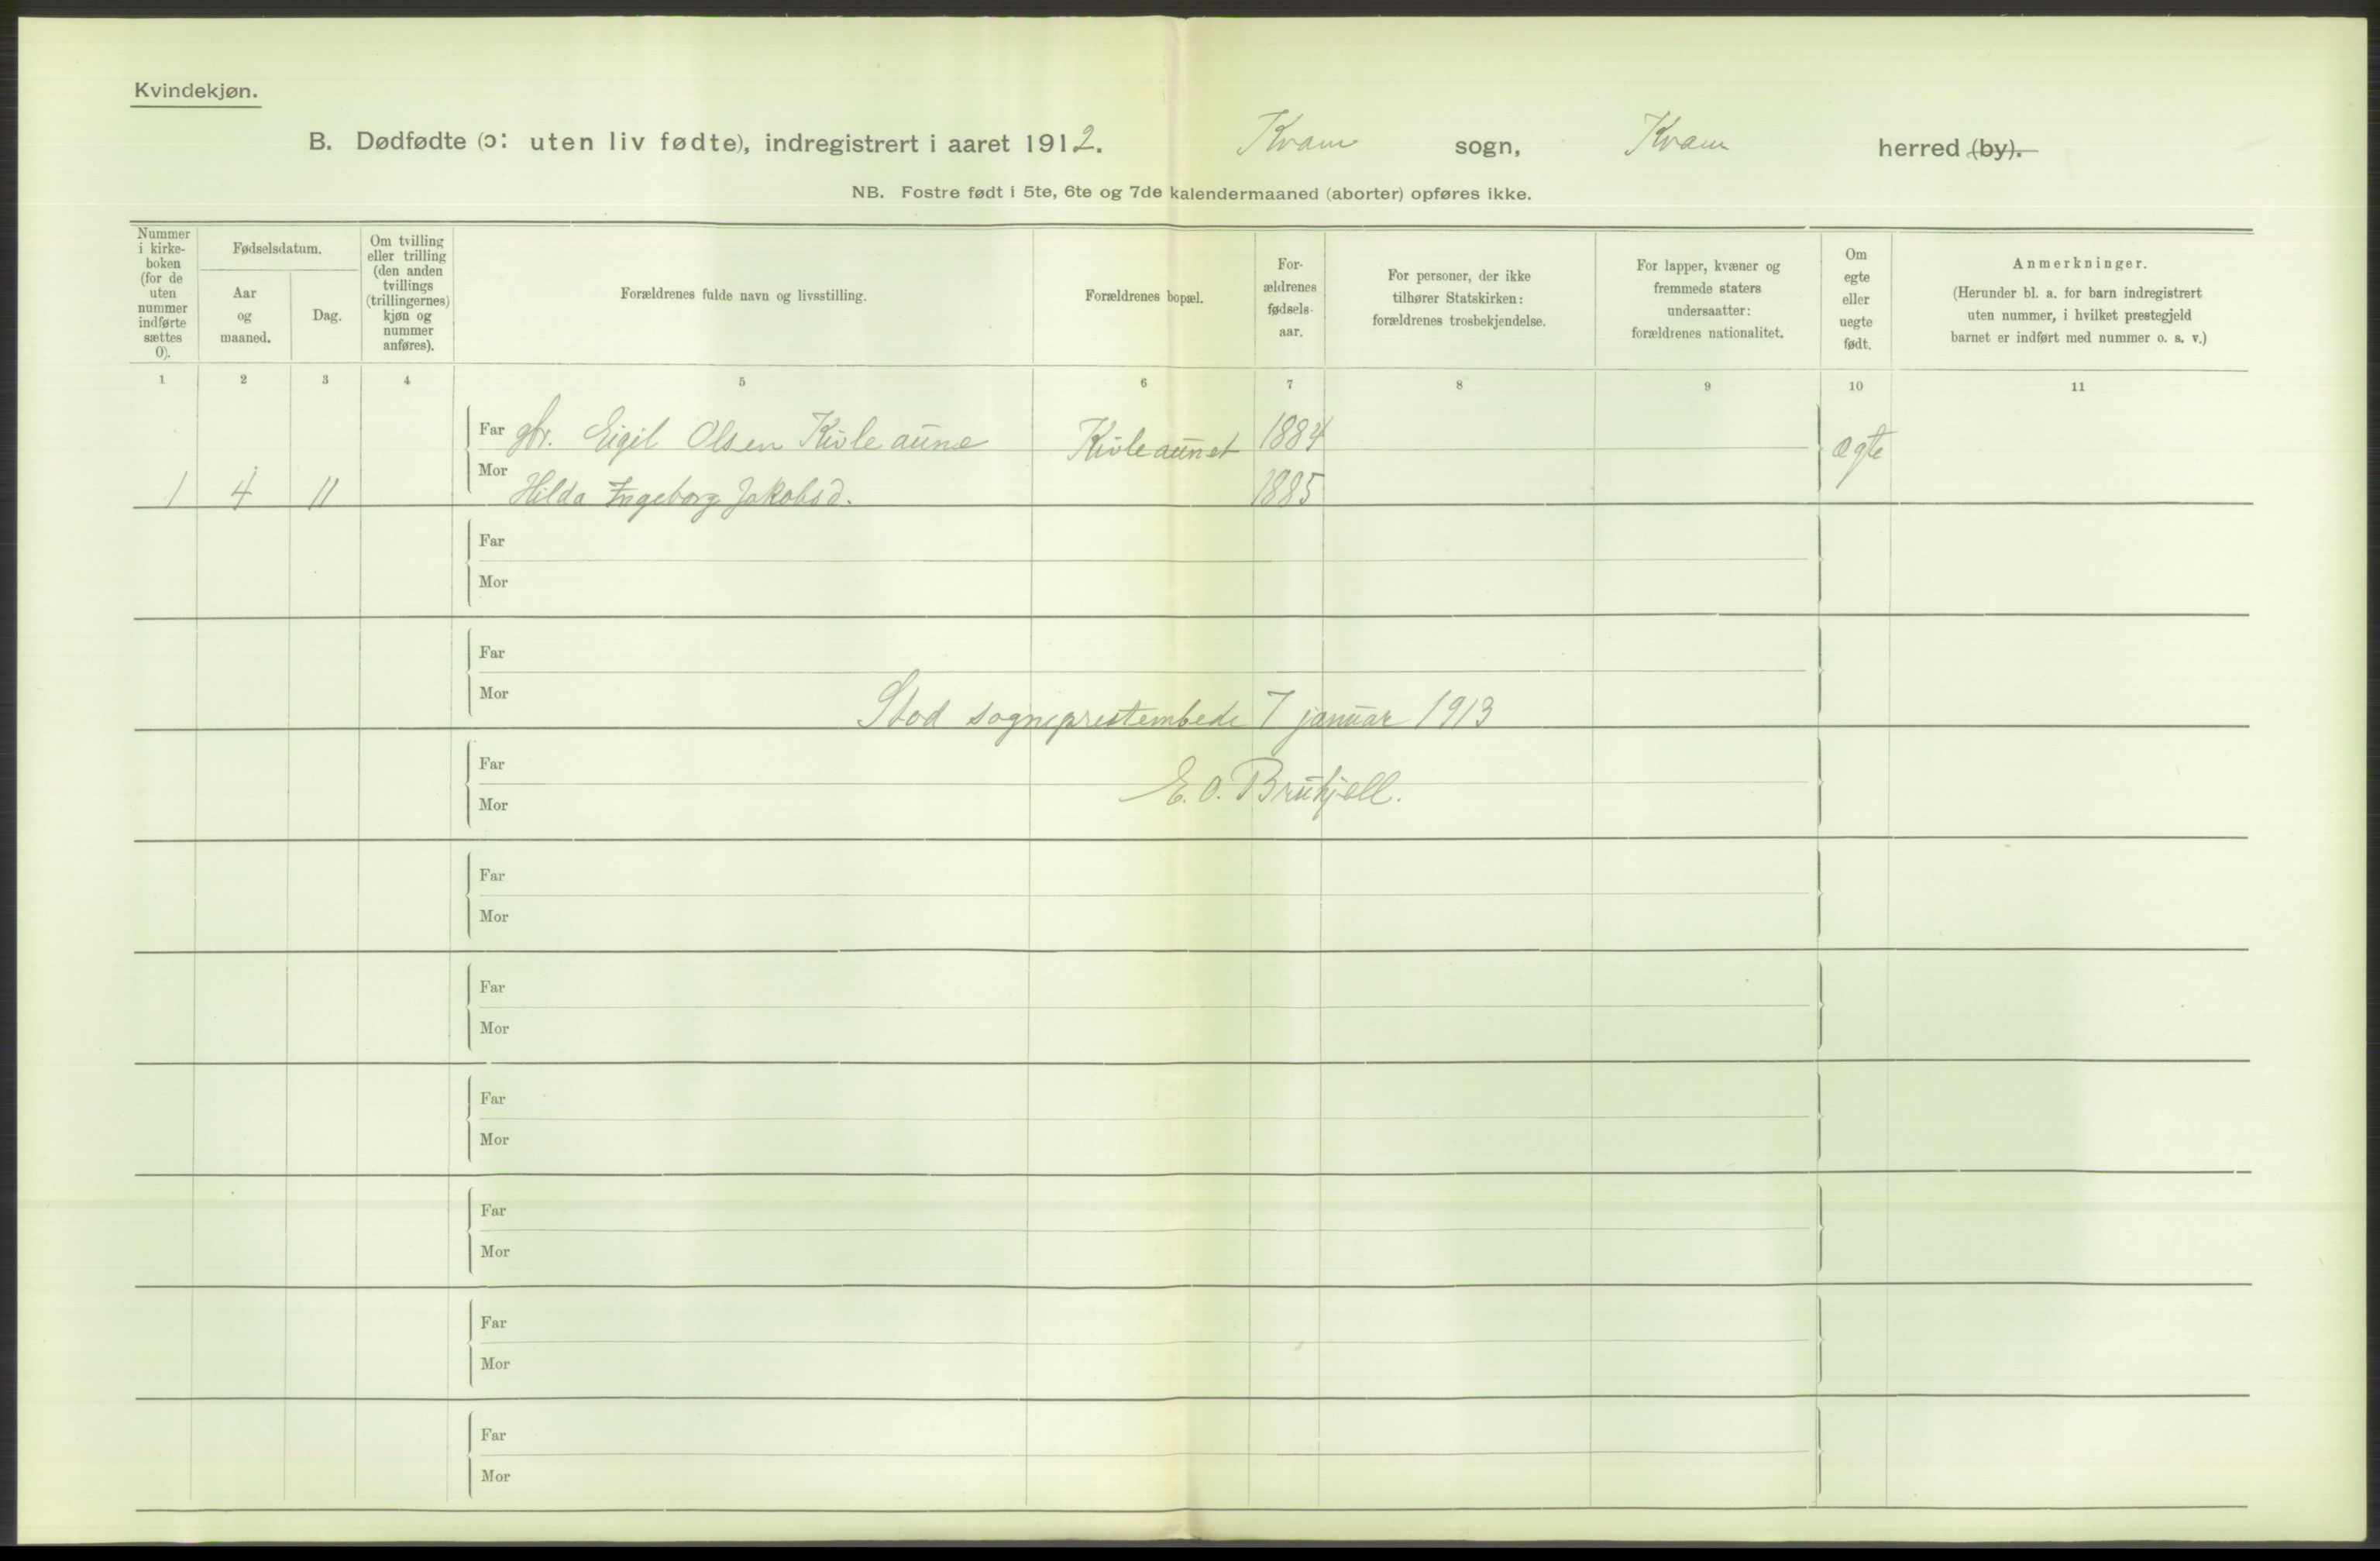 Kvindekjøn.
B. Dødfødte (ɔ: uten liv fødte), indregistrert i aaret 1912. Kvam sogn, Kvam herred (by).
NB. Fostre født i 5te, 6te og 7de kalendermaaned (aborter) opføres ikke.
Nummer
i kirke-
boken
(for de
uten
nummer
indførte
sættes
0).
Fødselsdatum.
Aar
og
maaned.
Dag.
Om tvilling
eller trilling
(den anden
tvillings
(trillingernes)
kjøn og
nummer
anføres).
Forældrenes fulde navn og livsstilling.
Forældrenes bopæl.
For-
ældrenes
fødsels-
aar.
For personer, der ikke
tilhører Statskirken:
forældrenes trosbekjendelse.
For lapper, kvæner og
fremmede staters
undersaatter:
forældrenes nationalitet.
Om
egte
eller
uegte
født.
Anmerkninger.
(Herunder bl. a. for barn indregistrert
uten nummer, i hvilket prestegjeld
barnet er indført med nummer o. s. v.)
1 2 3 4 5 6 7 8 9 10 11
Far gbr. Eigil Olsen Kivleaune Kivleaunet 1884 ægte
1 4 11 Mor Hilda Ingeborg Jakobsd. 1885
Far
Mor
Far
Mor
Stod sogneprestembede 7 januar 1913
Far
E. O. Brufjell.
Mor
Far
Mor
Far
Mor
Far
Mor
Far
Mor
Far
Mor
Far
Mor